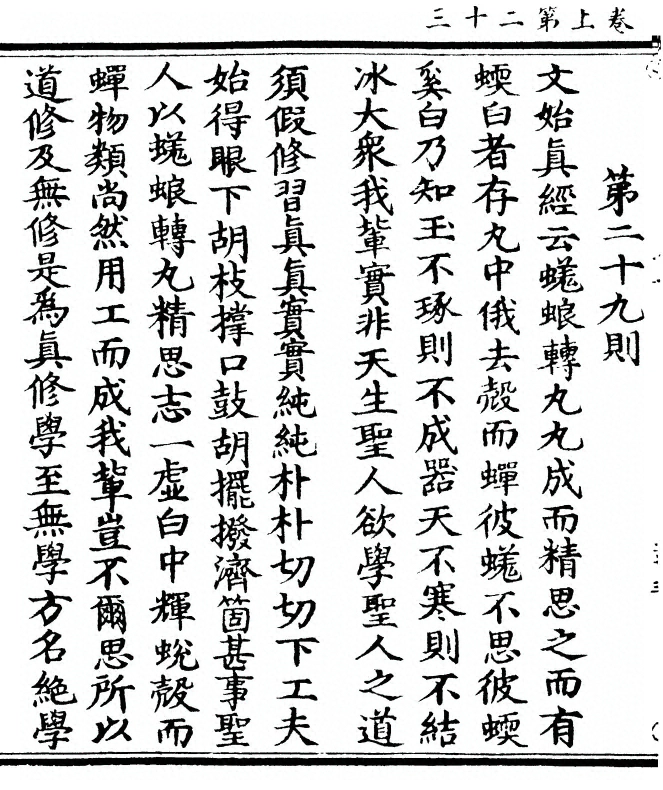 卷上第二十三
第二十九則
文始眞經云蜣蜋轉丸丸成而精思之而有
蝡白者存丸中俄去殼而蟬彼蜣不思彼蝡
奚白乃知玉不琢則不成器天不寒則不結
冰大衆我輩實非天生聖人欲學聖人之道
須假修習眞眞實實純純朴朴切切下工夫
始得眼下胡枝撑口鼓胡擺撥濟箇甚事聖
人以蜣蜋轉丸精思志一虛白中輝蛻殼而
蟬物類尚然用工而成我輩豈不爾思所以
道修及無修是爲眞修學至無學方名絶學